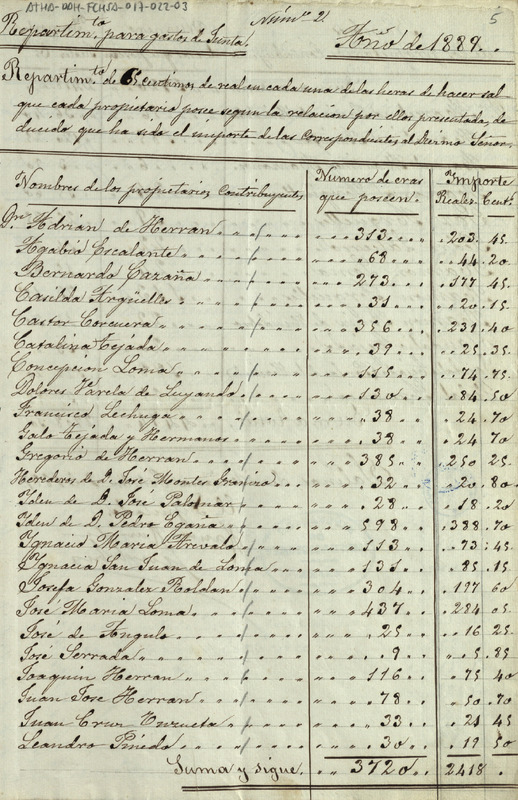 ATHA-DDH-FCHSA-017-022-03
Núm.º 2
5
Repartim.to para gastos de Junta.
Año de 1889.
Repartim.to de 65 centimos de real en cada una de las heras de hacer sal
que cada propietario posee segun la relacion por ellos presentada, de
ducido que ha sido el importe de las correspondientes al Diezmo Señor.
Nombres de los propietarios Contribuyentes Número de eras que poseen. Importe Reales. Cent.s
Dn Adrian de Herran 313 203 45
Agabio Escalante 68 44 20
Bernardo Cazaña 273 177 45
Casilda Argüelles 31 20 15
Castor Corcuera 356 231 40
Catalina Tejada 39 25 35
Concepcion Loma 115 74 75
Dolores Varela de Luyando 130 84 50
Francisco Lechuga 38 24 70
Galo Tejada y Hermanos 38 24 70
Gregorio de Herran 385 250 25
Herederos de D. José Montes 32 20 80
Idem de D. José Palomar 28 18 20
Idem de D. Pedro Egaña 598 388 70
Ignacio Maria Arevalo 113 73 45
Ignacia San Juan de Loma 131 85 15
Josefa Gonzalez Roldan 304 197 60
José Maria Loma 437 284 05
José de Angulo 25 16 25
José Serrada 9 5 85
Joaquin Herran 116 75 40
Juan Jose Herran 78 50 70
Juan Cruz Unzueta 33 21 45
Leandro Pinedo 30 19 50
Suma y sigue. 3720 2418